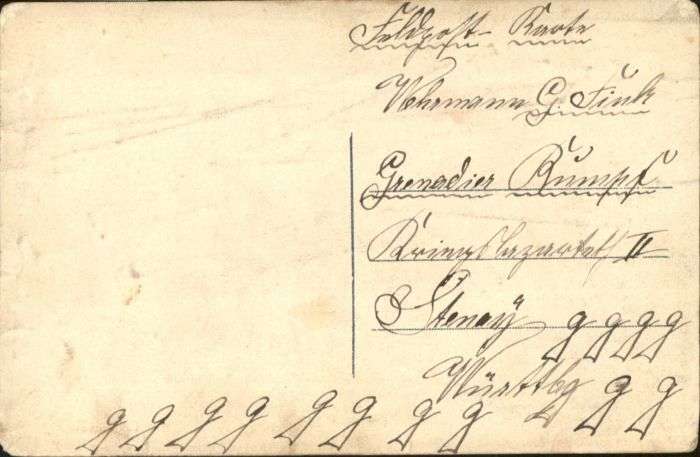 Feldpost- Karte
Wehrmann G. Fink
Grenadier Rumpf
Kriegslazarett II
Stenay g g g g
Württbg g g
g g g g g g g g